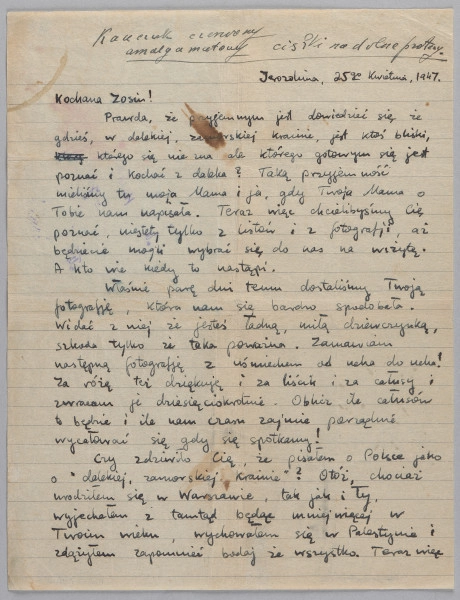 Kauczuk czerwony
amalgamatowy ciszki na dolne protezy.
Jerozolima, 25go Kwietnia, 1947.
Kochana Zosiu!
Prawda, że przyjemnym jest dowiedzieć się że
gdzieś, w dalekiej, zamorskiej krainie, jest ktoś bliski,
którego się nie zna ale którego gotowym się jest
poznać i kochać z daleka? Taką przyjemność
mieliśmy tu moja Mama i ja, gdy Twoja Mama o
Tobie nam napisała. Teraz więc chcielibyśmy Cię
poznać, niestety tylko z listów i z fotografji, aż
będziecie mogli wybrać się do nas na wizytę.
A kto wie kiedy to nastąpi.
Właśnie parę dni temu dostaliśmy Twoją
fotografję, która nam się bardzo spodobała.
Widać z niej że jesteś ładną, miłą dziewczynką,
szkoda tylko że taka poważna. Zamawiam
następną fotografję z uśmiechem od ucha do ucha!
Za różę też dziękuję i za liścik i za całusy i
zwracam je dziesięciokrotnie. Oblicz ile całusów
to będzie i ile nam czasu zajmie porządne
wycałować się gdy się spotkamy!
Czy zdziwiło Cię, że pisałem o Polsce jako
o "dalekiej, zamorskiej krainie"? Otóż, chociaż
urodziłem się w Warszawie, tak jak i Ty,
wyjechałem z tamtąd będąc mniejwięcej w
Twoim wieku, wychowałem się w Palestynie i
zdążyłem zapomnieć bodaj że wszystko. Teraz więc